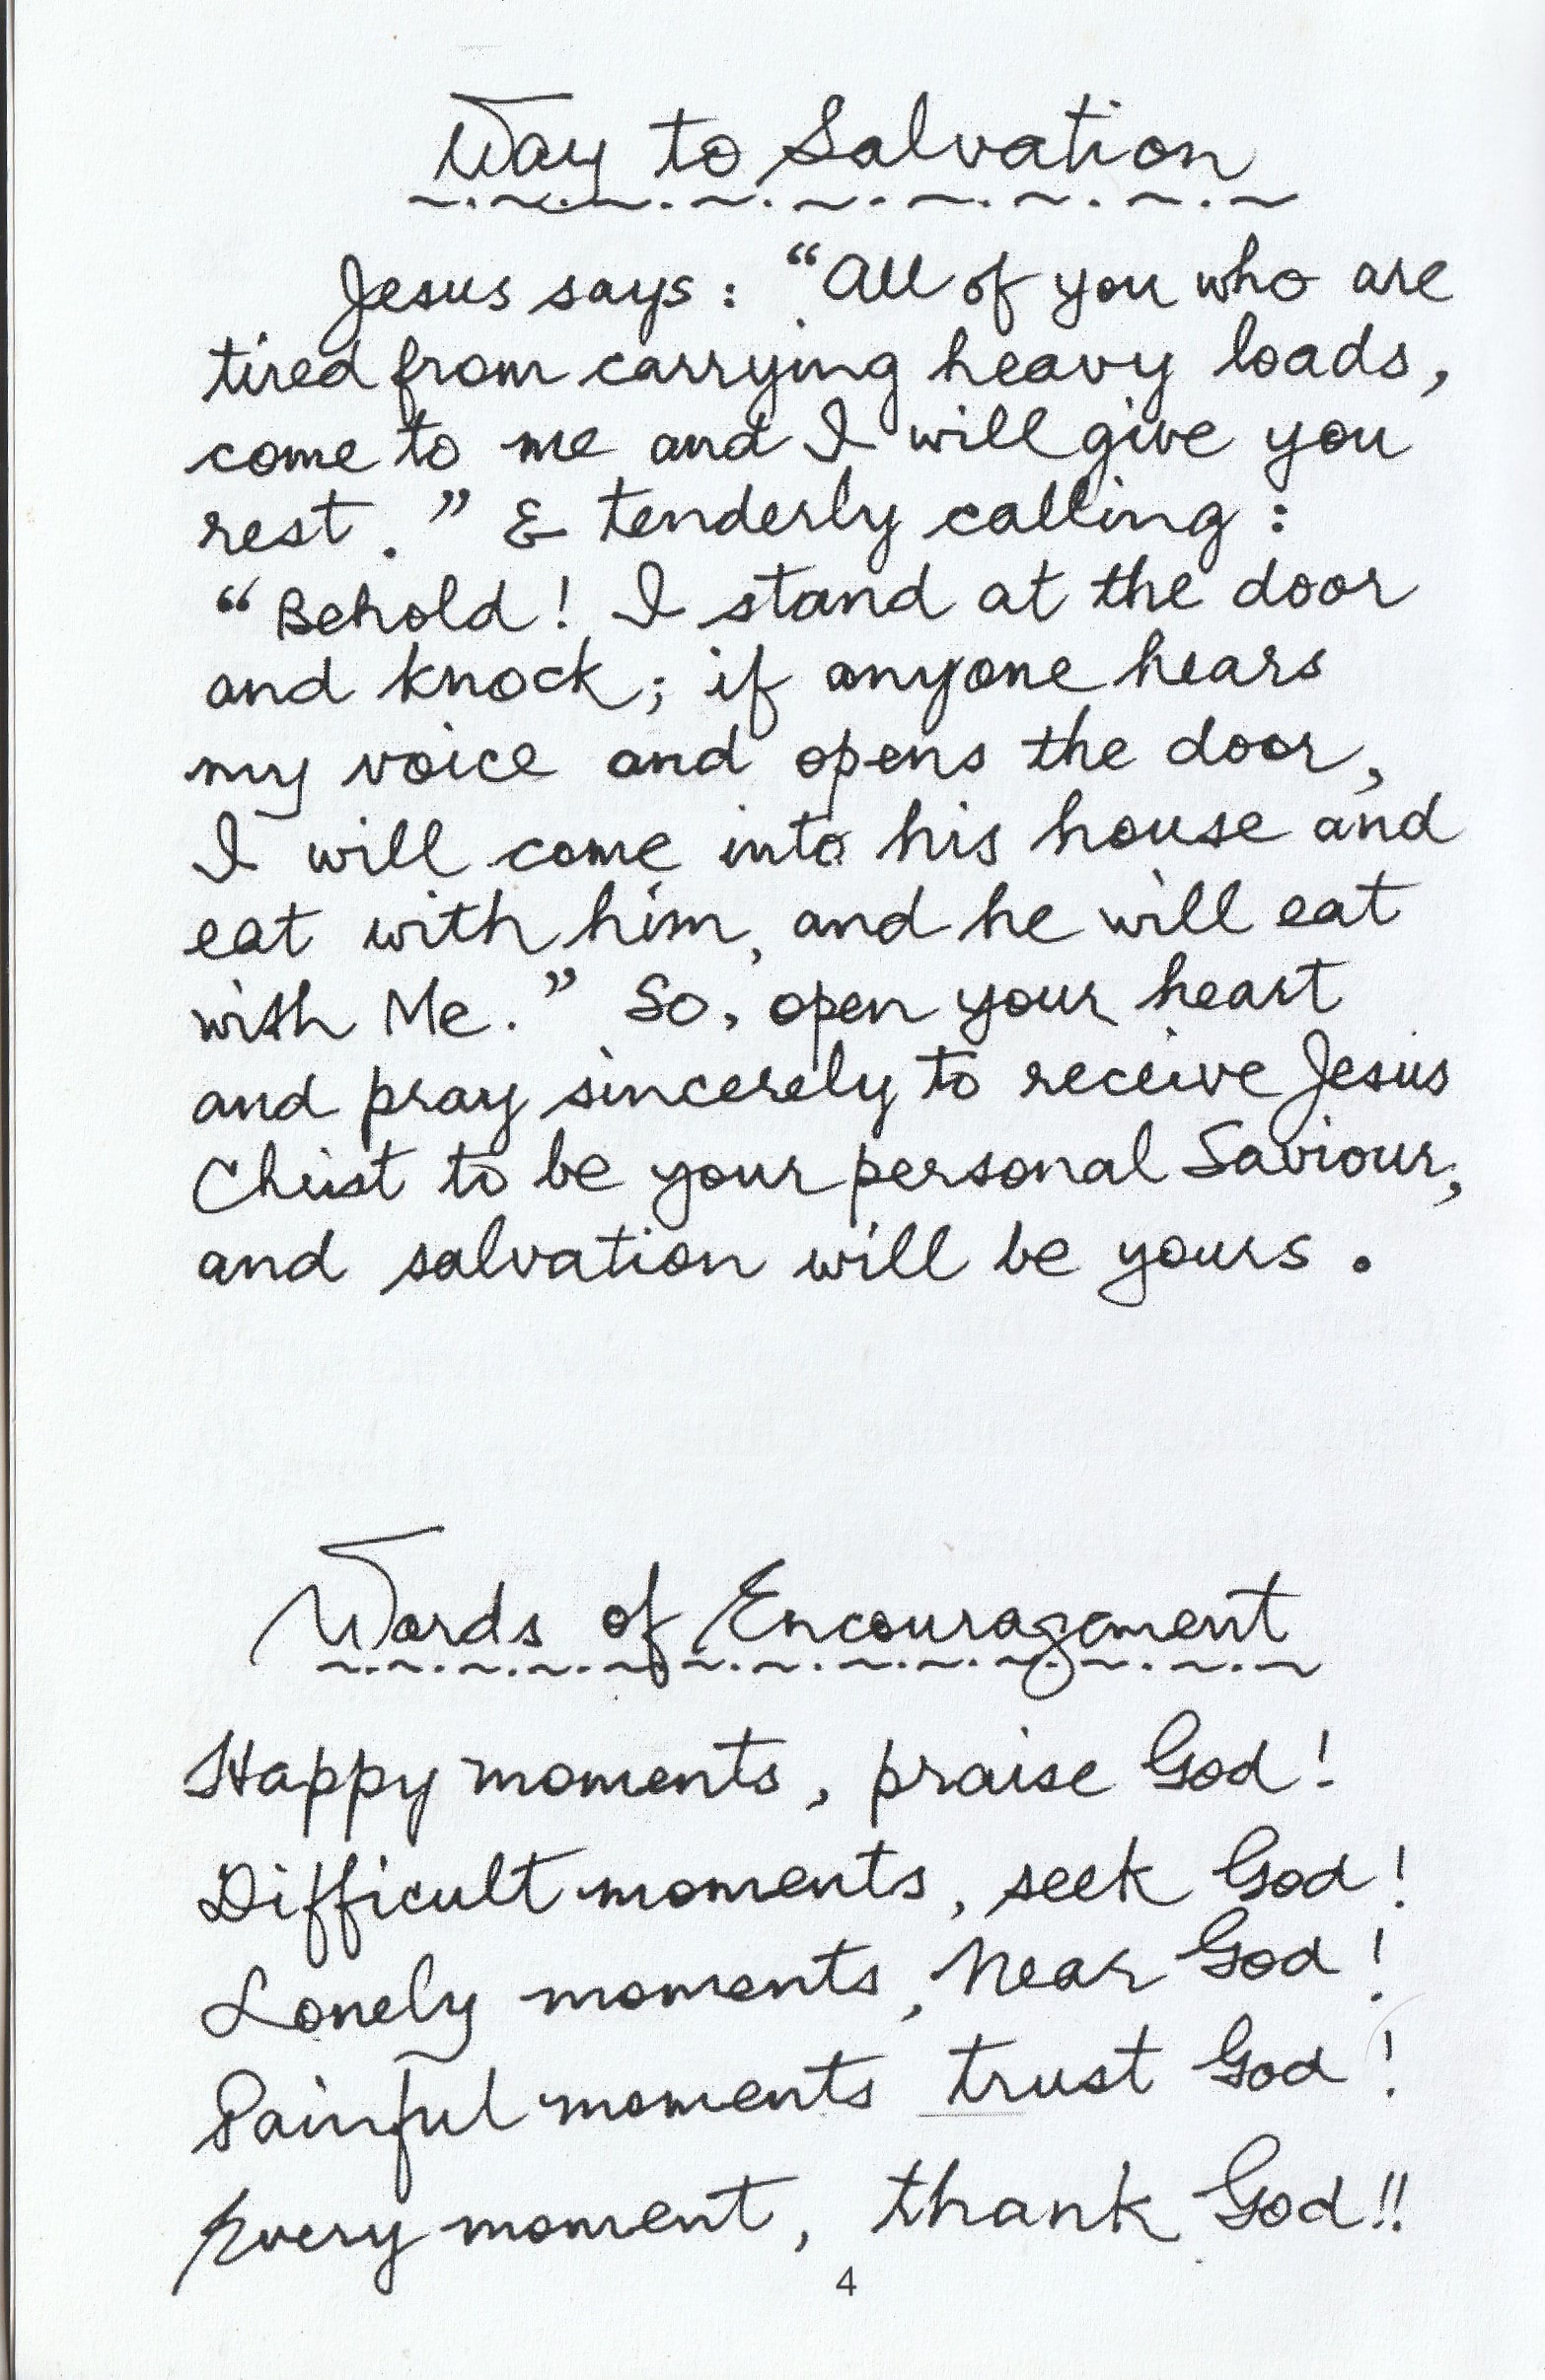 Way to Salvation
Jesus says: "All of you who are
tired from carrying heavy loads,
come to me and I will give you
rest." & tenderly calling:
"Behold! I stand at the door
and knock; if anyone hears
my voice and opens the door,
I will come into his house and
eat with him, and he will eat
with Me." So, open your heart
and pray sincerely to receive Jesus
Christ to be your personal Saviour,
and salvation will be yours.
Words of Encouragement
Happy moments, praise God!
Difficult moments, seek God!
Lonely moments, Near God!
Painful moments trust God!
Every moment, thank God!!
4